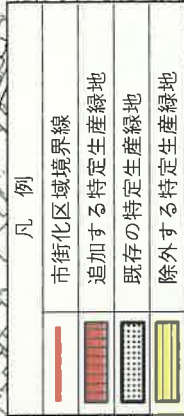 凡例
市街化区域境界線
追加する特定生産緑地
既存の特定生産緑地
除外する特定生産緑地